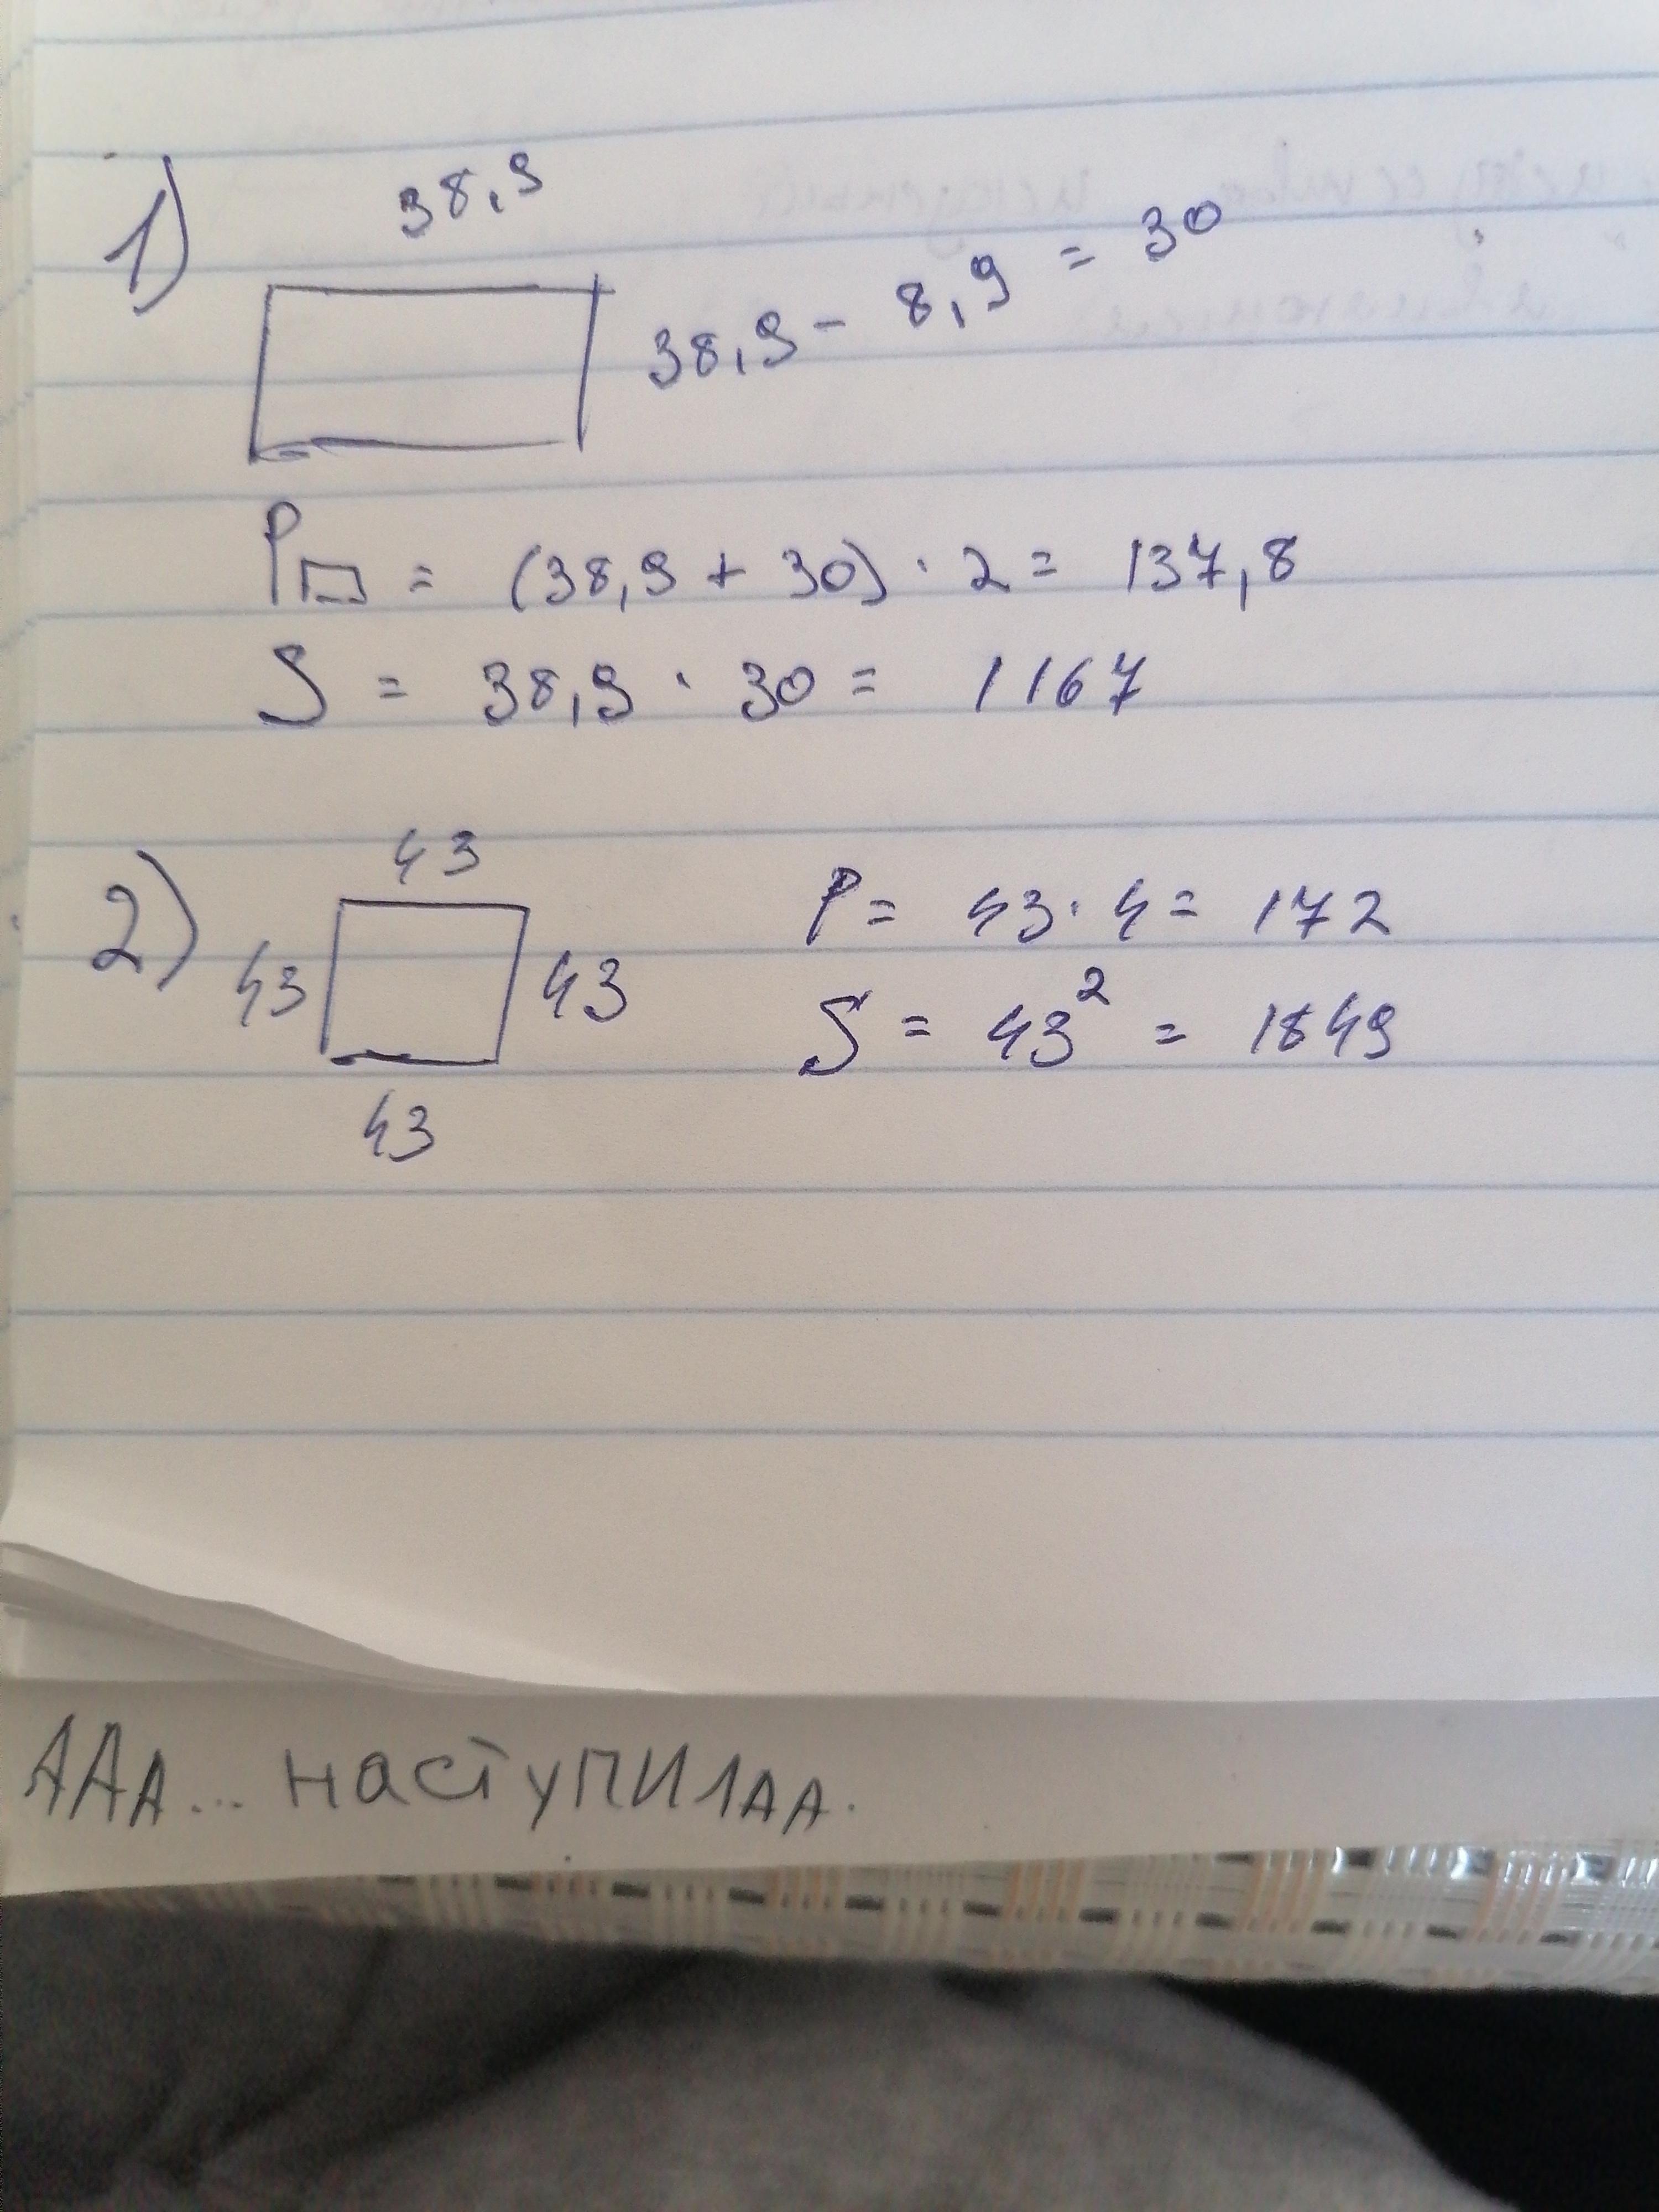 1)
38,9
38,9 - 8,9 = 30
P▭ = (38,9 + 30) · 2 = 137,8
S = 38,9 · 30 = 1167
2)
43
43
43
43
P = 43 · 4 = 172
S = 43² = 1849
ААА... настУПИЛАА.